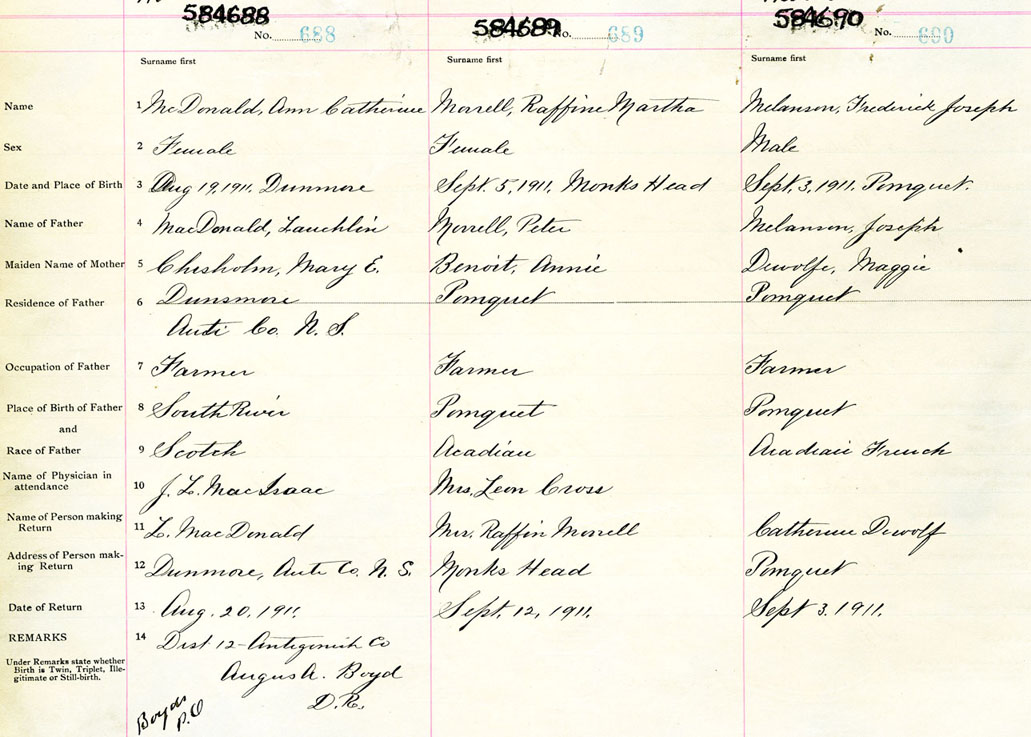 584688 584689 584690
No. 688 No. 689 No. 690
Surname first Surname first Surname first
Name 1 McDonald, Ann Catherine Morrell, Raffine Martha Melanson, Frederick Joseph
Sex 2 Female Female Male
Date and Place of Birth 3 Aug 19, 1911, Dunmore Sept. 5, 1911, Monks Head Sept. 3, 1911. Pomquet.
Name of Father 4 MacDonald, Lauchlin Morrell, Peter Melanson, Joseph
Maiden Name of Mother 5 Chisholm, Mary E. Benoit, Annie Dewolfe, Maggie
Residence of Father 6 Dunsmore Pomquet Pomquet
Anti Co. N. S.
Occupation of Father 7 Farmer Farmer Farmer
Place of Birth of Father 8 South River Pomquet Pomquet
and
Race of Father 9 Scotch Acadian Acadian French
Name of Physician in
attendance 10 J. L. MacIsaac Mrs. Leon Cross
Name of Person making
Return 11 L. MacDonald Mrs. Raffin Morrell Catherine Dewolf
Address of Person mak-
ing Return 12 Dunmore, Anti Co. N. S. Monks Head Pomquet
Date of Return 13 Aug. 20, 1911. Sept. 12, 1911. Sept 3. 1911.
REMARKS 14 Dist 12 - Antigonish Co
Under Remarks state whether
Birth is Twin, Triplet, Ille-
gitimate or Still-birth.
Angus A. Boyd
D.R.
Boyds
P.O